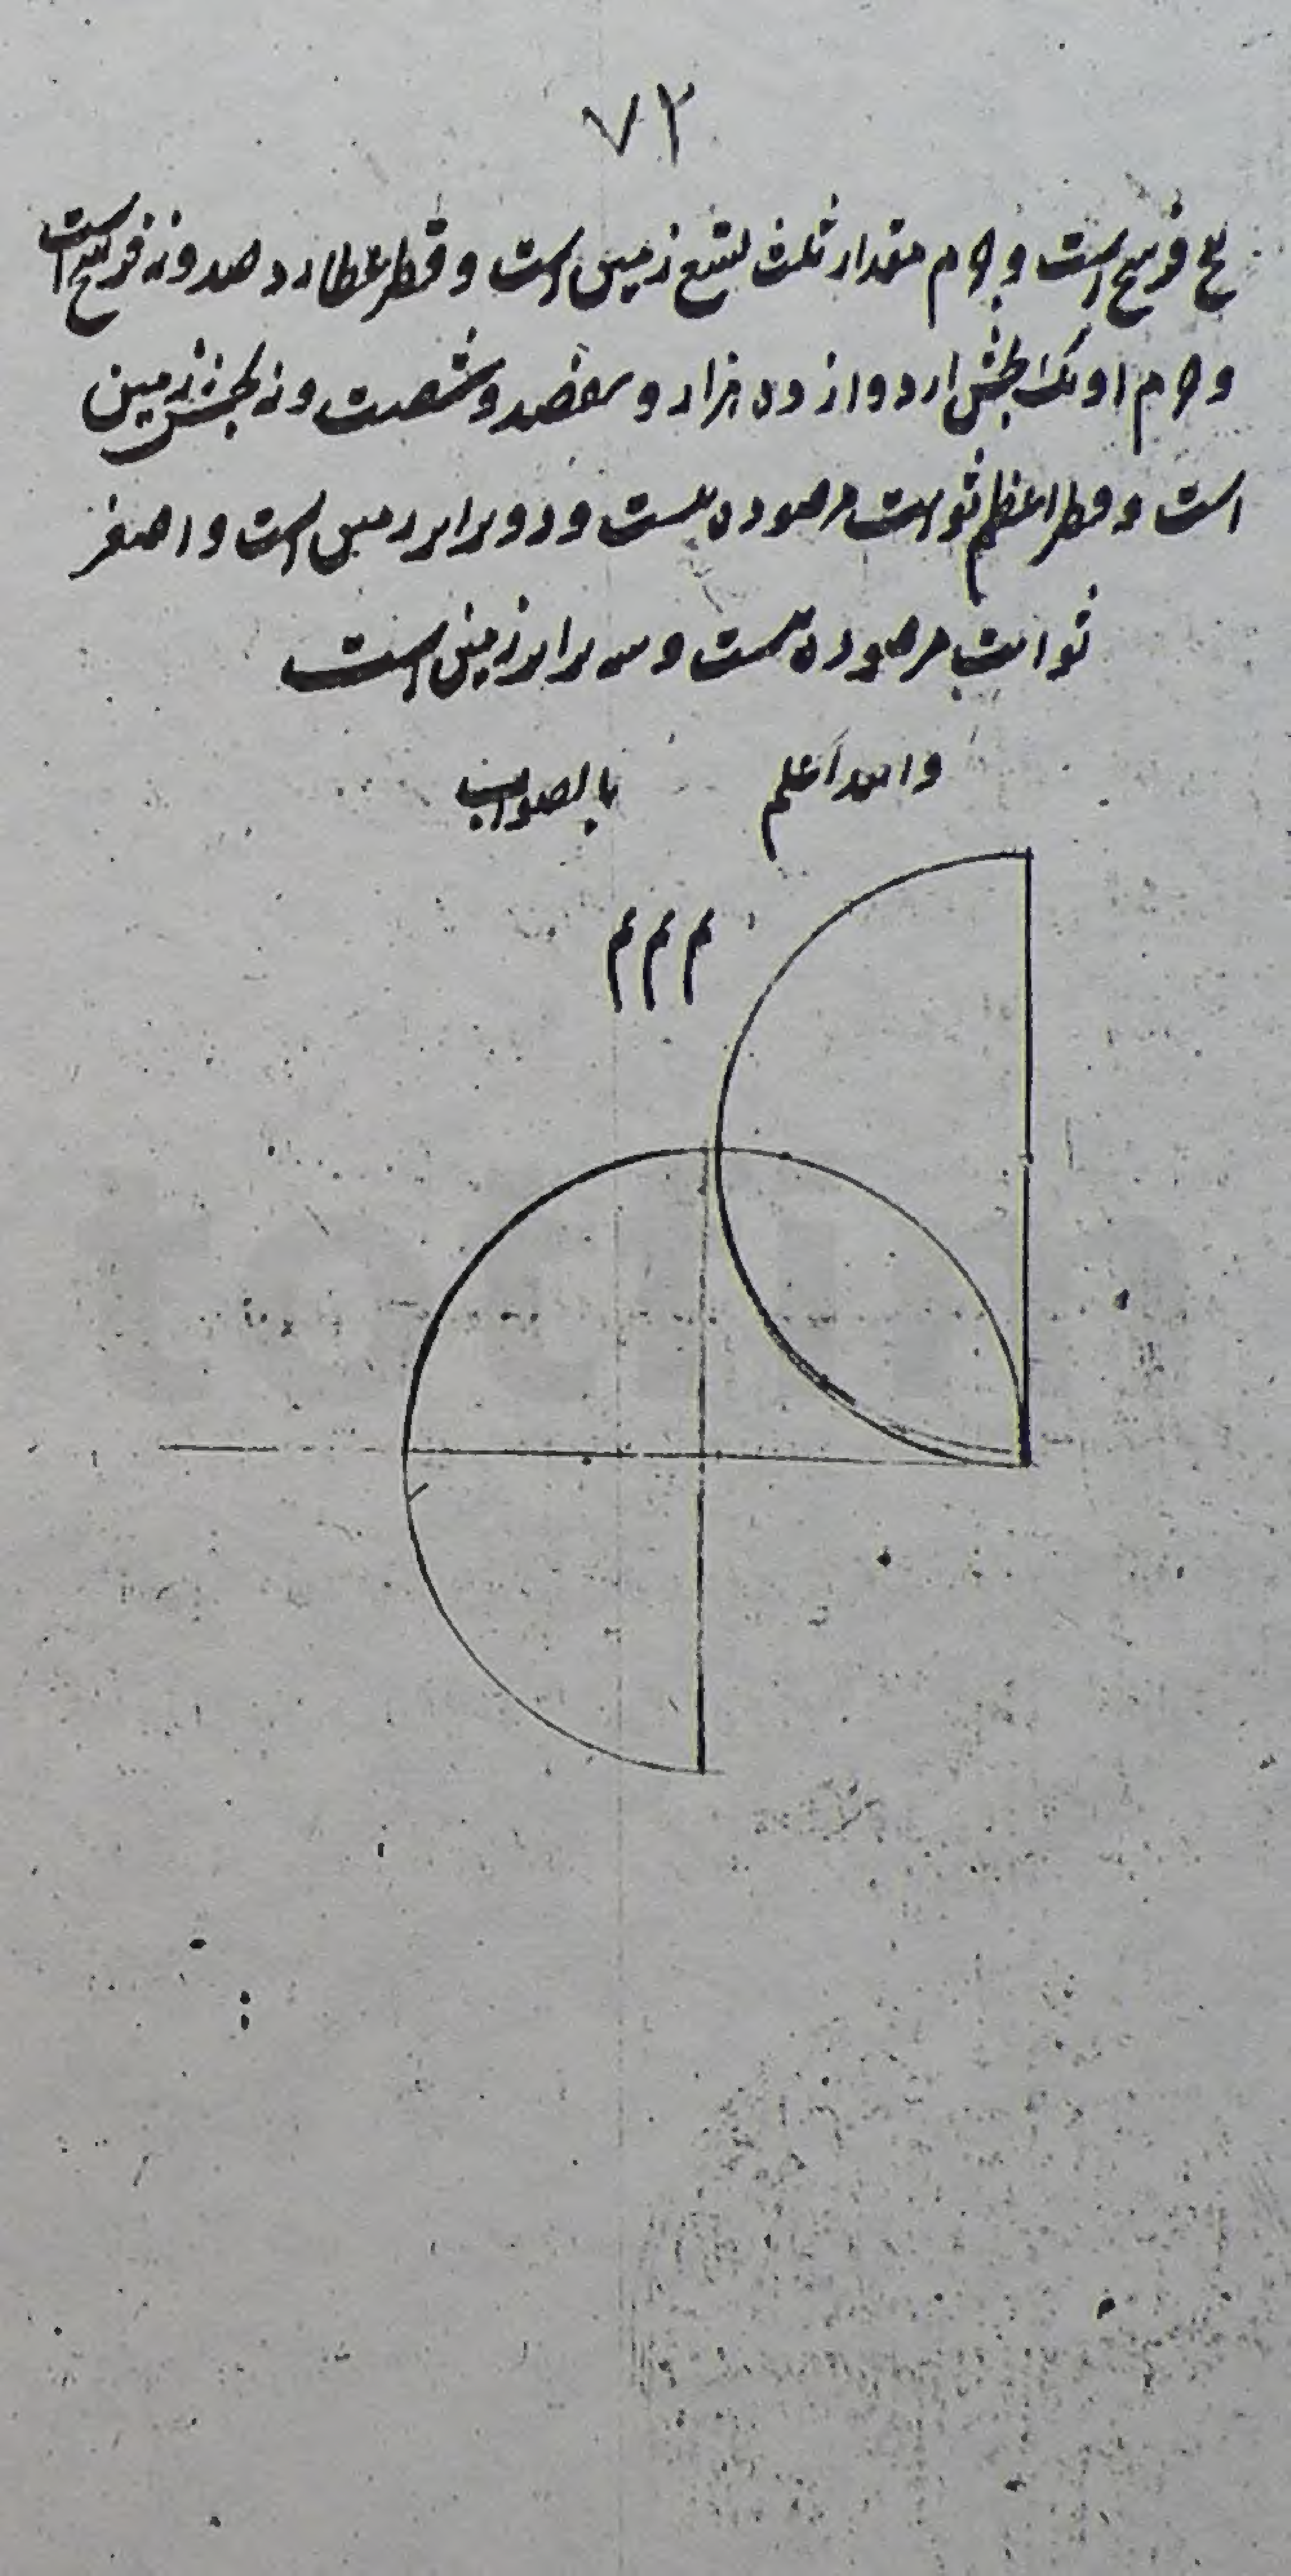 ٧٢
فرسخ است و جرم مقدار ثلث تسع زمین است و قطر عطارد صد و نه فرسخ است
و جرم او یک بخش از دوازده هزار و هفصد و شصت و نه بخش زمین
است و قطر اعظم ثوابت مرصوده بیست و دو برابر زمین است و اصغر
ثوابت مرصوده بیست و سه برابر زمین است
والله اعلم بالصواب
م م م